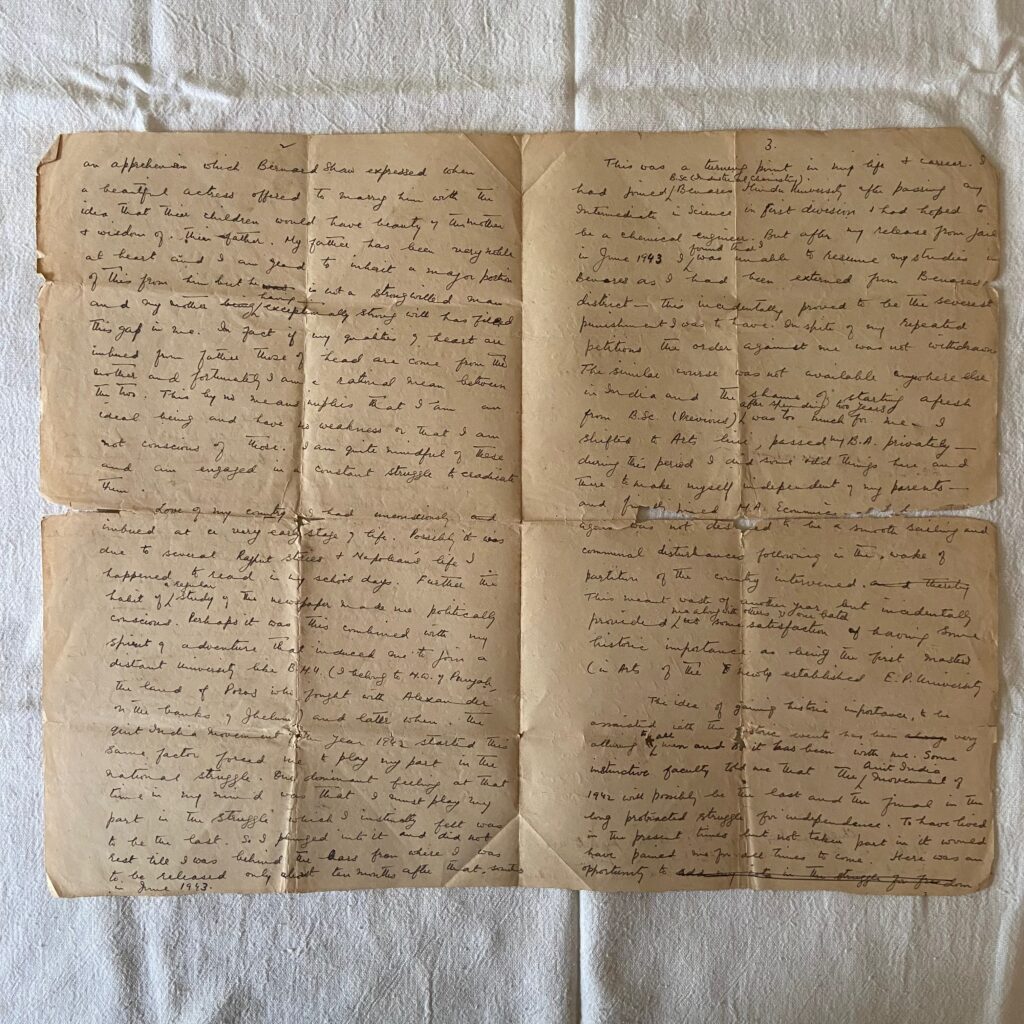 2
an apprehension which Bernard Shaw expressed when
a beautiful actress offered to marry him with the
idea that their children would have beauty of the mother
& wisdom of their father. My father has been very noble
at heart and I am glad to inherit a major portion
of this from him but he is not a strongwilled man
and my mother having exceptionally strong will has filled
this gap in me. In fact if my qualities of heart are
imbued from father those of head are come from the
mother and fortunately I am a rational mean between
the two. This by no means implies that I am an
ideal being and have no weakness or that I am
not conscious of those. I am quite mindful of these
and am engaged in a constant struggle to eradicate
them.
Love of my country I had unconsciously and
imbued at a very early stage of life. Possibly it was
due to several Rajput stories & Napoleon's life I
happened to read in my school days. Further the
a regular
habit of study of the newspaper made me politically
conscious. Perhaps it was this combined with my
spirit of adventure that induced me to join a
distant University like B.H.U. (I belong to N.W. of Punjab,
the land of Poros who fought with Alexander
on the banks of Jhelum) and latter when the
quit India movement in the year 1942 started this
same factor forced me to play my part in the
national struggle. One dominant feeling at that
time in my mind was that I must play my
part in the struggle which I instinctly felt was
to be the last. So I plunged into it and did not
rest till I was behind the bars from where I was
to be released only about ten months after that
in June 1943.
3.
This was a turning point in my life & career. I
B.Sc (Industrial Chemistry).
had joined Benares Hindu University after passing my
Intermediate in Science in first division & had hoped to
be a chemical engineer. But after my release from jail
found that I
in June 1943 I was unable to resume my studies in
Benares as I had been externed from Benares
district — this incidentally proved to be the severest
punishment I was to have. In spite of my repeated
petitions the order against me was not withdrawn
The similar course was not available anywhere else
in India and the shame of starting afresh
after spending two years
from B.Sc (Previous) was too much for me — I
shifted to Art line, passed my B.A. privately —
during this period I did some odd things here and
there to make myself independent of my parents —
and joined M.A. Economics
again was not destined to be a smooth sailing and
communal disturbances following in the, wake of
partition of the country intervened. and thereby
This meant waste of another year, but incidentally
me along with others of our batch
provided some satisfaction of having some
historic importance as being the first Master
(in Arts of the newly established E.P. University
The idea of gaining historic importance, to be
associated with the historic events has been very
alluring to all men and it has been with me. Some
Quit India
instinctive faculty told me that the Movement of
1942 will possibly be the last and the final in the
long protracted struggle for independence. To have lived
in the present times but not taken part in it would
have pained me for all times to come. Here was an
opportunity to add my bits in the struggle for freedom